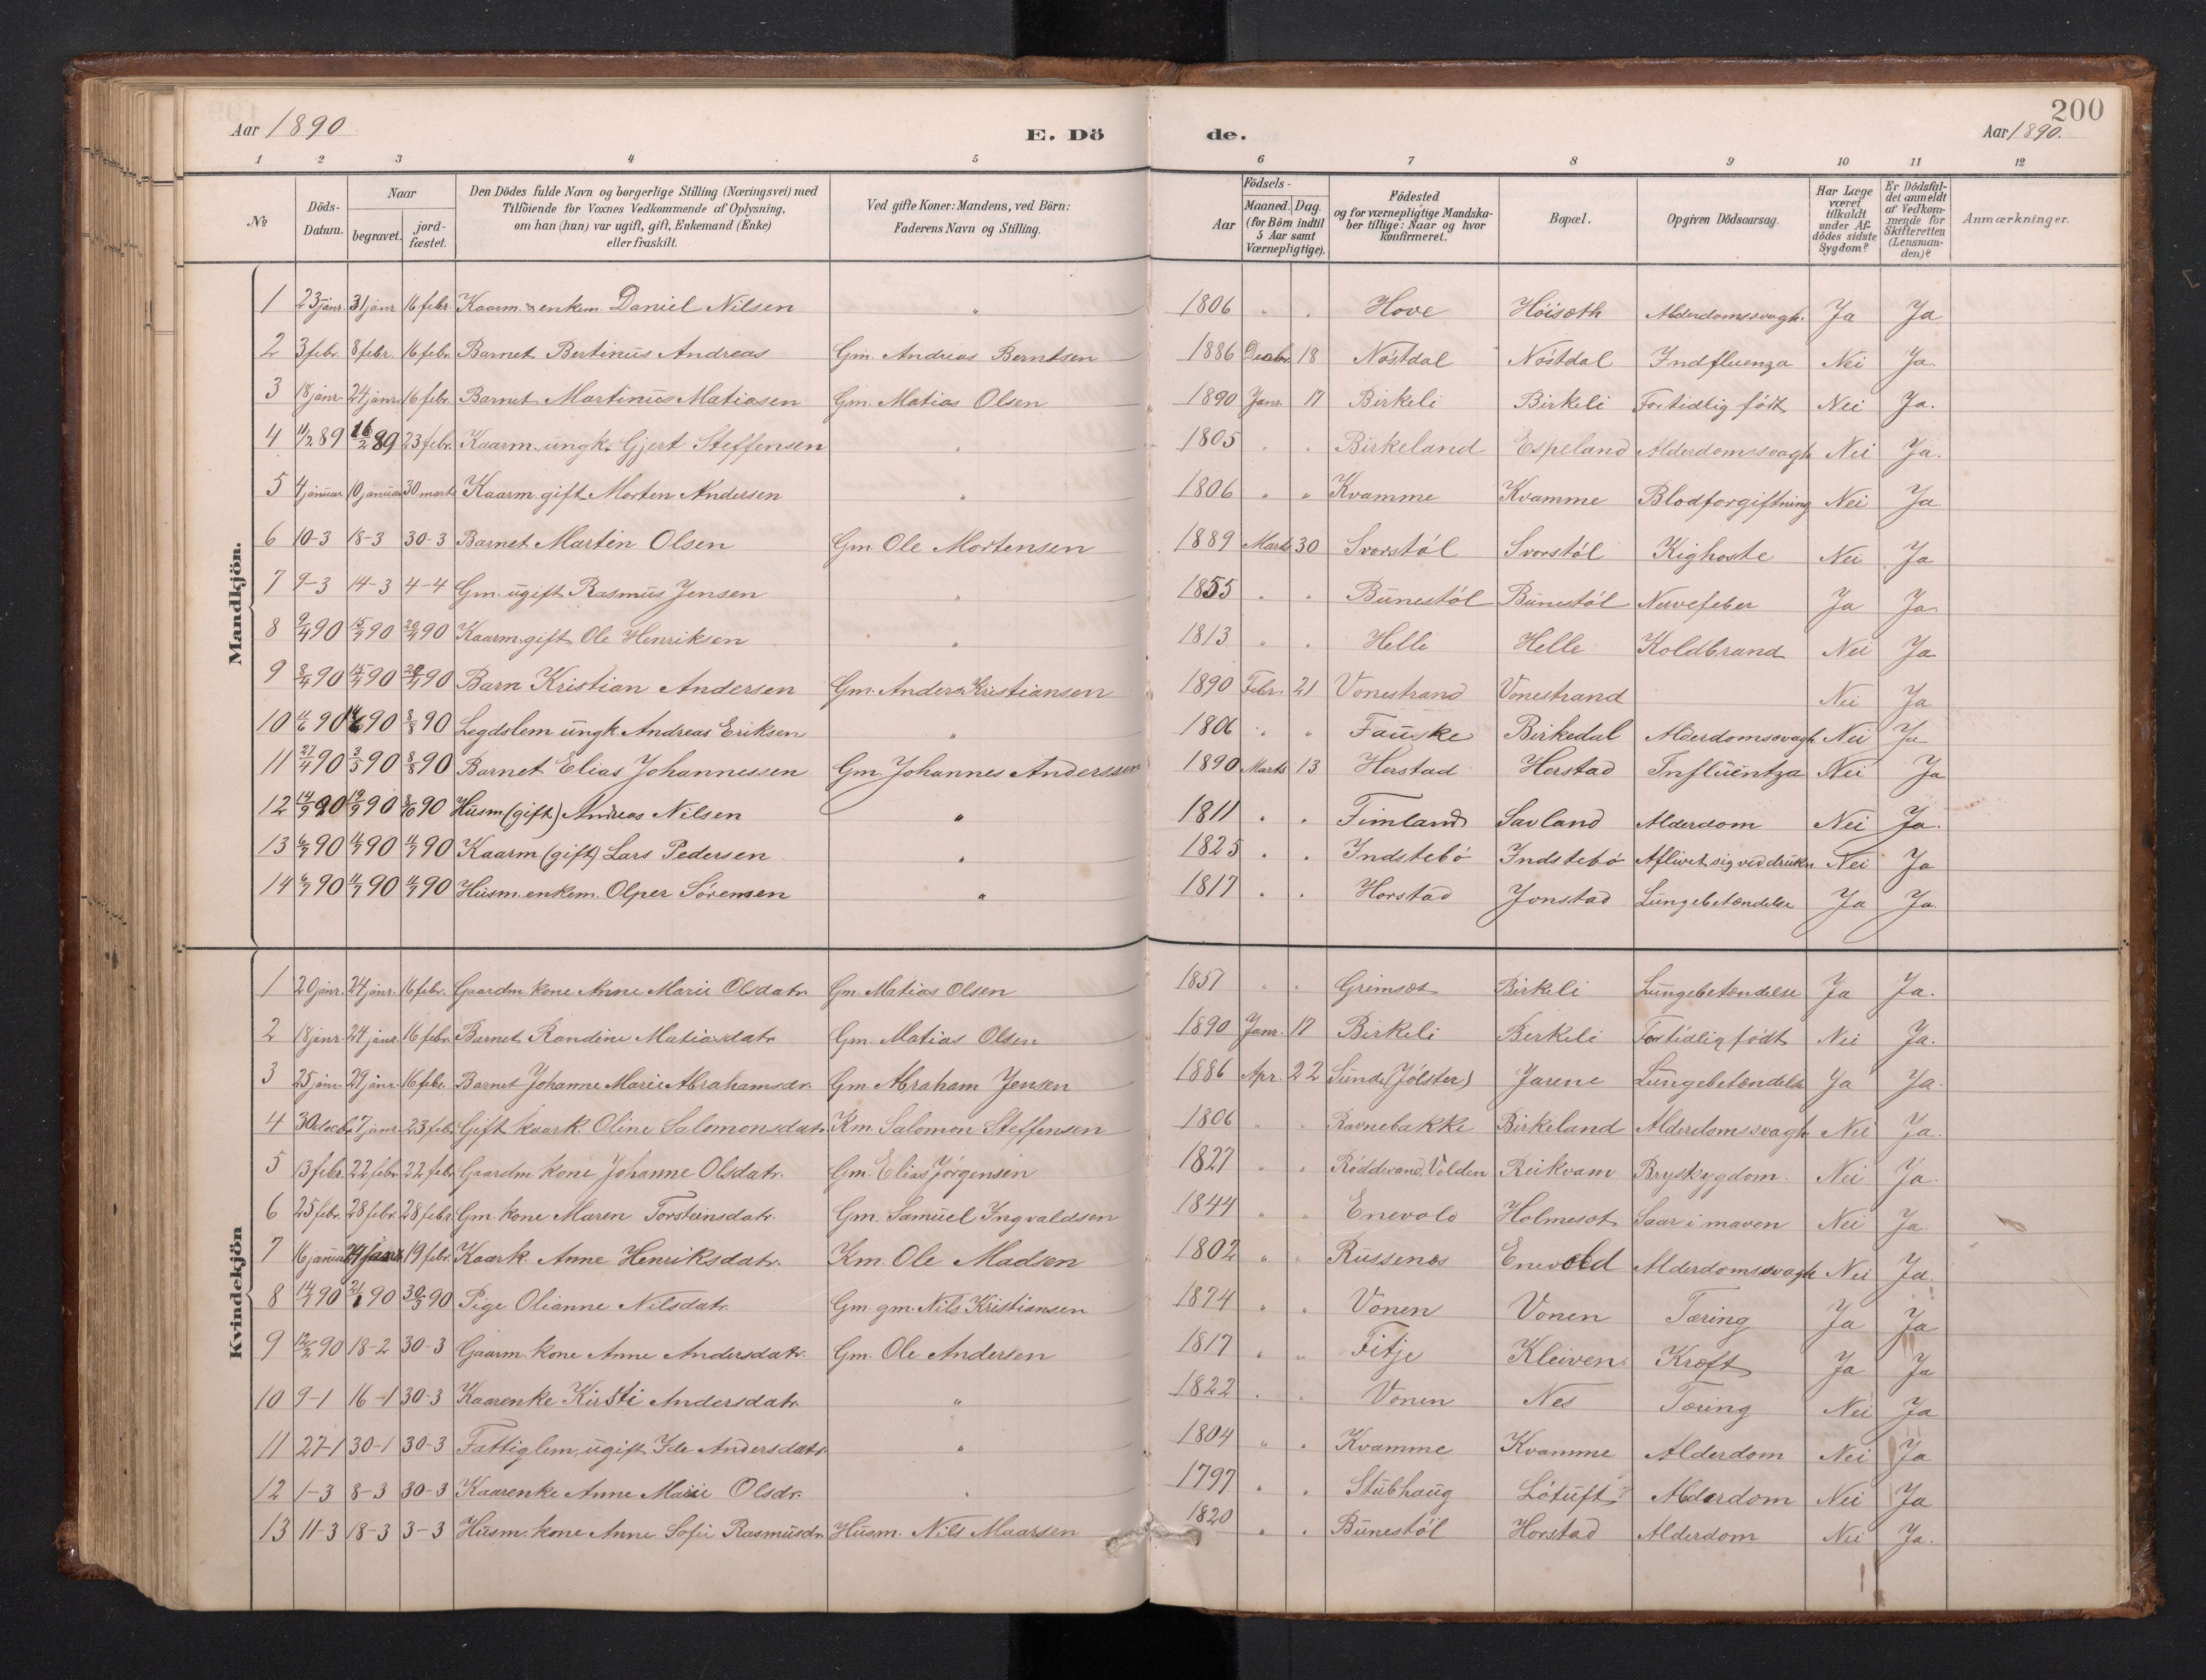 200
Aar 1890
E. Dö
de.
Aar 1890.
1 2 3 4 5 6 7 8 9 10 11 12
No
Döds-Datum.
Naar
begravet.
jord-fæstet.
Den Dödes fulde Navn og borgerlige Stilling (Næringsvei) med
Tilföiende for Voxnes Vedkommende af Oplysning,
om han (hun) var ugift, gift, Enkemand (Enke)
eller fraskilt.
Ved gifte Koner: Mandens, ved Börn:
Faderens Navn og Stilling.
Födsels-
Aar
Maaned. Dag.
(for Börn indtil
5 Aar samt
Værnepligtige).
Födested
og for værnepligtige Mandska-
ber tillige: Naar og hvor
Konfirmeret.
Bopæl.
Opgiven Dödsaarsag.
Har Læge
været
tilkaldt
under Af-
dödes sidste
Sygdom?
Er Dödsfal-
det anmeldt
af Vedkom-
mende for
Skifteretten
(Lensman-
den)?
Anmærkninger.
Mandkjön.
1 23 janr. 31 janr 16 febr. Kaarm. enkem. Daniel Nilsen " 1806 " " Hove Höisæth Alderdomssvagh. Ja Ja
2 3 febr. 8 febr. 16 febr. Barnet Bertinus Andreas Gm. Andreas Berntsen 1886 Decbr. 18 Nöstdal Nöstdal Indfluenza Nei Ja.
3 18 janr. 24 janr. 16 febr. Barnet Martinus Matiasen Gm. Matias Olsen 1890 Janr. 17 Birkeli Birkeli For tidlig födt Nei Ja.
4 11/2 89 16/2 89 23 febr. Kaarm. ungk. Gjert Steffensen " 1805 " " Birkeland Espeland Alderdomssvagh Nei Ja.
5 4 januar 10 januar 30 marts Kaarm. gift Morten Andersen " 1806 " " Kvamme Kvamme Blodforgiftning Nei Ja.
6 10-3 18-3 30-3 Barnet Martin Olsen Gm. Ole Mortensen 1889 Marts 30 Svorstöl Svorstöl Kighoste Nei Ja
7 9-3 14-3 4-4 Gm. ugift Rasmus Jensen " 1855 " " Bunestöl Bunestöl Nervefeber Ja Ja.
8 9/4 90 15/4 90 20/4 90 Kaarm. gift Ole Henriksen " 1813 " " Helle Helle Koldbrand Nei Ja
9 8/4 90 15/4 90 20/4 90 Barn Kristian Andersen Gm. Anders Kristiansen 1890 Febr. 21 Vonestrand Vonestrand Nei Ja
10 90 90 8/8 90 Legdslem ungk. Andreas Eriksen " 1806 " " Fauske Birkedal Alderdomssvagh Nei Ja
11 27/4 90 3/5 90 8/8 90 Barnet Elias Johannessen Gm Johannes Anderssen 1890 Marts 13 Herstad Herstad Influentza Nei Ja
12 14/9 90 19/9 90 8/10 90 Husm (gift) Andreas Nilsen " 1811 " " Timland Savland Alderdom Nei Ja.
13 90 90 90 Kaarm (gift) Lars Pedersen " 1825 " " Indstebö Indstebö Aflivet sig ved Nei Ja
14 90 90 90 Husm. enkem. Olper Sörensen " 1817 " " Horstad Jonstad Lungebetændelse Ja Ja.
Kvindekjön
1 20 janr. 24 janr. 16 febr. Gaardm. kone Anne Marie Olsdatr. Gm. Matias Olsen 1857 " " Grimsæt Birkeli Lungebetændelse Ja Ja.
2 18 janr. 24 janr. 16 febr. Barnet Randine Matiasdatr Gm. Matias Olsen 1890 Janr. 17 Birkeli Birkeli For tidlig födt Nei Ja.
3 25 janr. 29 janr. 16 febr. Barnet Johanne Marie Abrahamsdr. Gm. Abraham Jensen 1886 Apr. 22 Sunde (Jölster) Jarene Lungebetændelse Ja Ja.
4 30 decbr. 7 janr. 23 febr. Gift kaark. Oline Salomonsdatr. Km. Salomon Steffensen 1806 " " Ravnebakke Birkeland Alderdomssvagh Nei Ja.
5 13 febr. 22 febr. 22 febr. Gaardm. kone Johanne Olsdatr. Gm. Elias Jörgensen 1827 " " Röddevand, Volden Reikvam Brystsygdom. Nei Ja.
6 25 febr. 28 febr. 28 febr. Gm. kone Maren Torsteinsdatr. Gm. Samuel Ingvaldsen 1844 " " Enevold Holmesæt Saar i maven Nei Ja.
7 16 januar 19 febr. Kaark. Anne Henriksdatr. Km. Ole Madsen 1802 " " Russenæs Enevold Alderdomssvagh Nei Ja.
8 90 90 30/3 90 Pige Olianne Nilsdatr. Gm. gm. Nils Kristiansen 1874 " " Vonen Vonen Tæring Ja Ja
9 12/2 90 18-2 30-3 Gaarm. kone Anne Andersdatr. Gm. Ole Andersen 1817 " " Fitje Kleiven Kræft Ja Ja
10 9-1 16-1 30-3 Kaarenke Kirsti Andersdatr. " 1822 " " Vonen Nes Tæring Nei Ja
11 27-1 30-1 30-3 Fattiglem, ugift Ide Andersdatr. " 1804 " " Kvamme Kvamme Alderdom Nei Ja
12 1-3 8-3 30-3 Kaarenke Anne Marie Olsdr. " 1797 " " Stubhaug Lötuft Alderdom Nei Ja
13 11-3 18-3 3-3 Husm. kone Anne Sofie Rasmusdr. Husm. Nils Maarsen 1820 " " Bunestöl Horstad Alderdom Nei Ja.